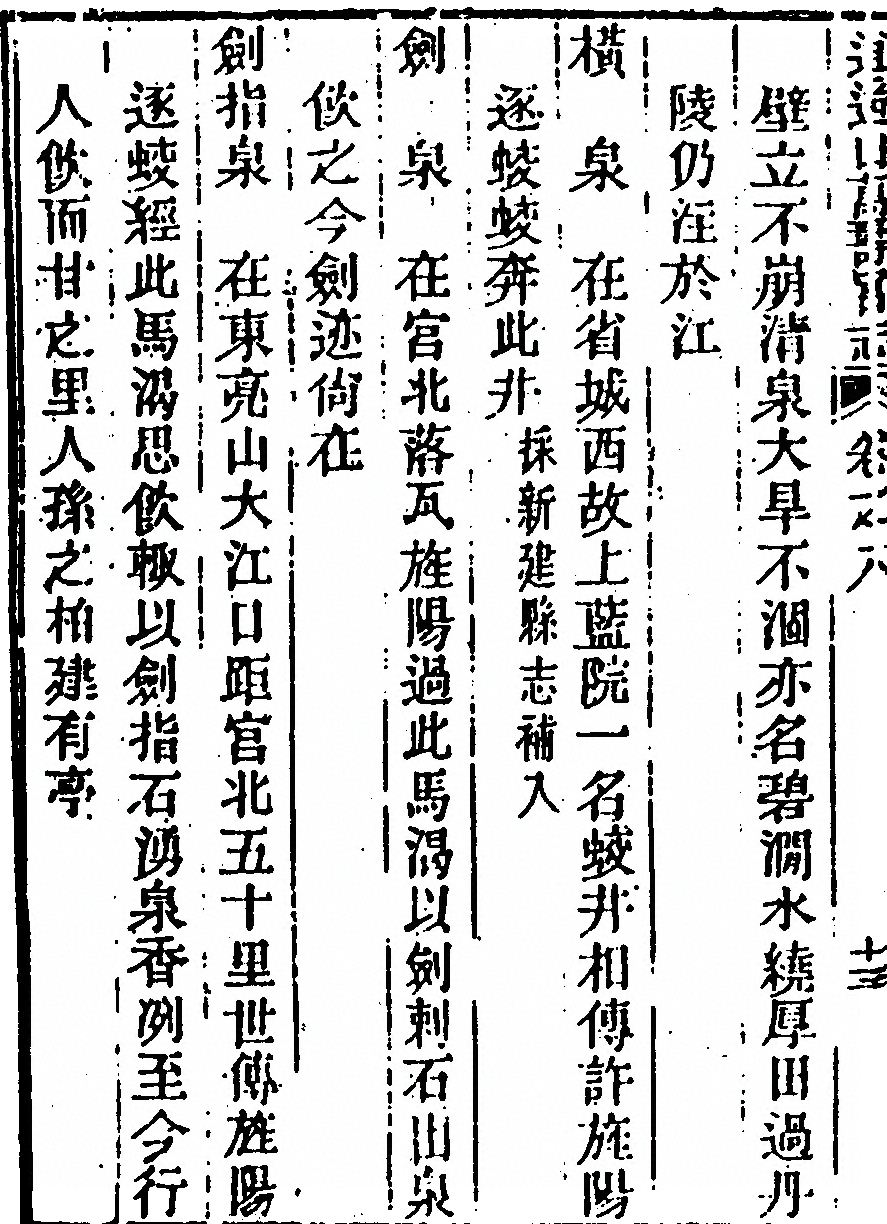 逍遙山萬壽宮志 卷之八 十三
壁立不崩清泉大旱不涸亦名碧澗水繞厚田過丹
陵仍注於江
橫泉 在省城西故上藍院一名蛟井相傳許旌陽
逐蛟蛟奔此井 採新建縣志補入
劍泉 在宮北落瓦旌陽過此馬渴以劍刺石出泉
飲之今劍迹尙在
劍指泉 在東亮山大江口距宮北五十里世傳旌陽
逐蛟經此馬渴思飲輒以劍指石湧泉香冽至今行
人飲而甘之里人孫之柏建有亭